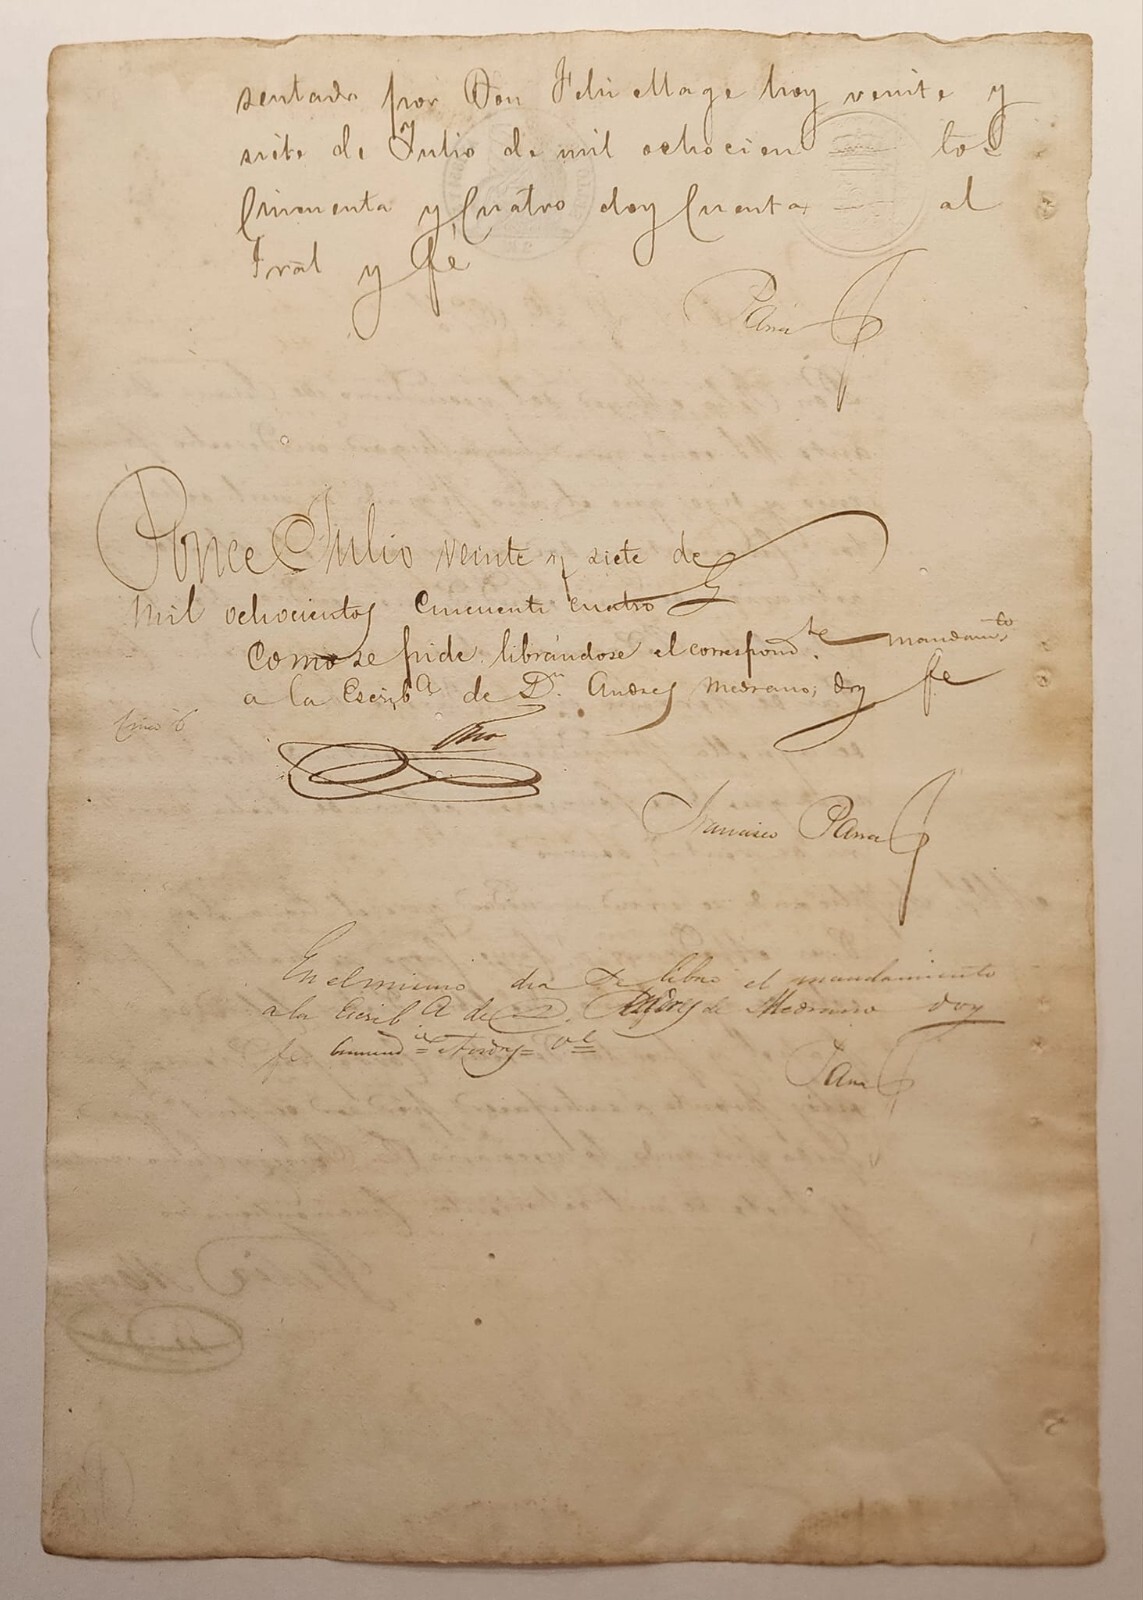 sentado por Don Felis Mage hoy veinte y
siete de Julio de mil ochocien tos
Cincuenta y Cuatro doy Cuenta al
Tral y fé
Parra
Ponce Julio veinte y siete de
mil ochocientos cincuenta cuatro
Como se pide librándose el correspondte mandamto
a la Escriba de Dn Andres Medrano; doy fe
Francisco Parra
En el mismo dia se libro el mandamiento
a la Escriba de D. Andres de Medrano doy
fe
Parra